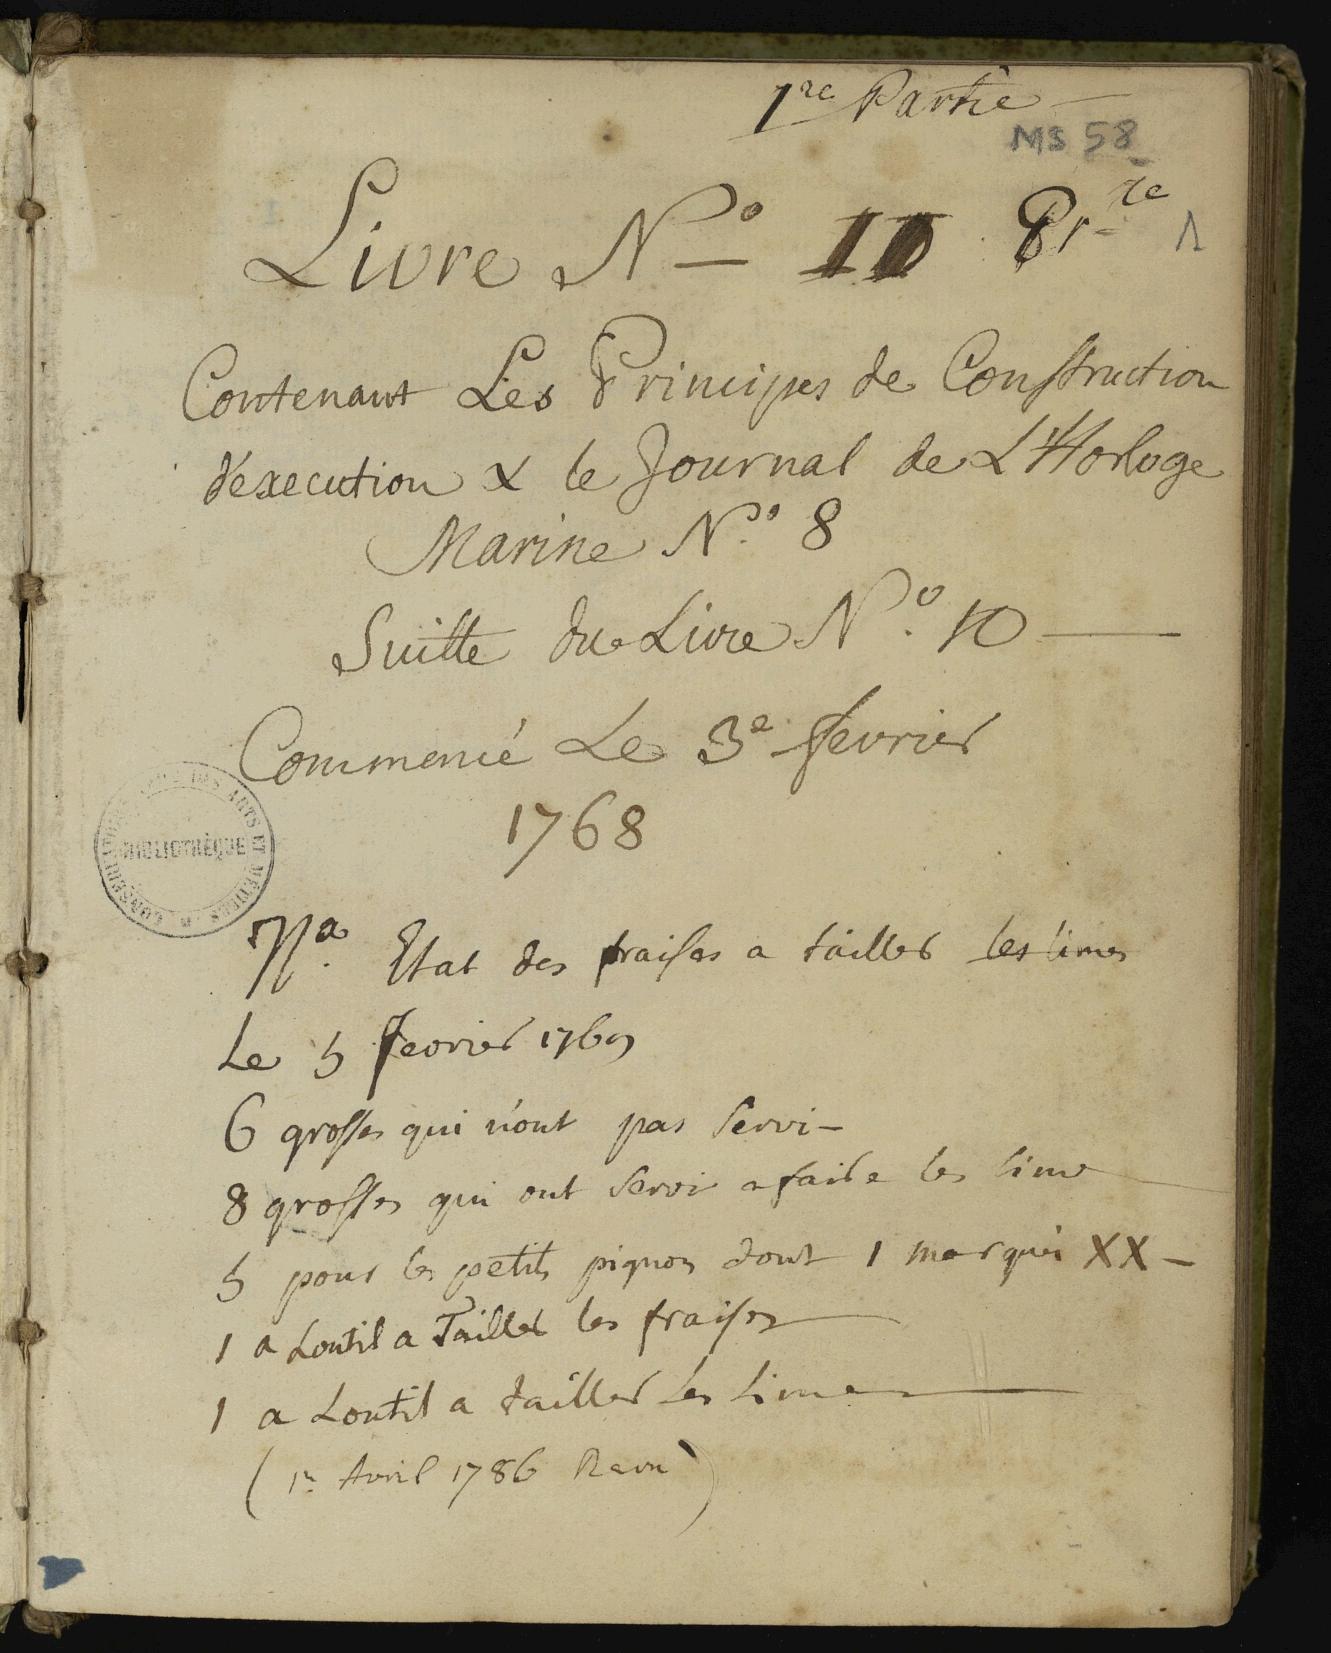 1re Partie
MS 58
Livre N.o 11 Pr.re 1
Contenant Les Principes de Construction
d'éxecution & le Journal de L'Horloge
Marine N.o 8
Suitte du Livre N.o 10
Commencé Le 3e fevrier
1768
CONSERVATOIRE DES ARTS ET METIERS
BIBLIOTHÈQUE
Na. Etat des fraises a tailler les limes
Le 5 fevrier 1769
6 grosses qui n'ont pas servi
8 grosses qui ont servi a faire les lime
5 pour les petits pignon dont 1 marqué XX
1 a Loutil a Tailler les fraises
1 a Loutil a tailler les Limes
(1r Avril 1786 Revu)